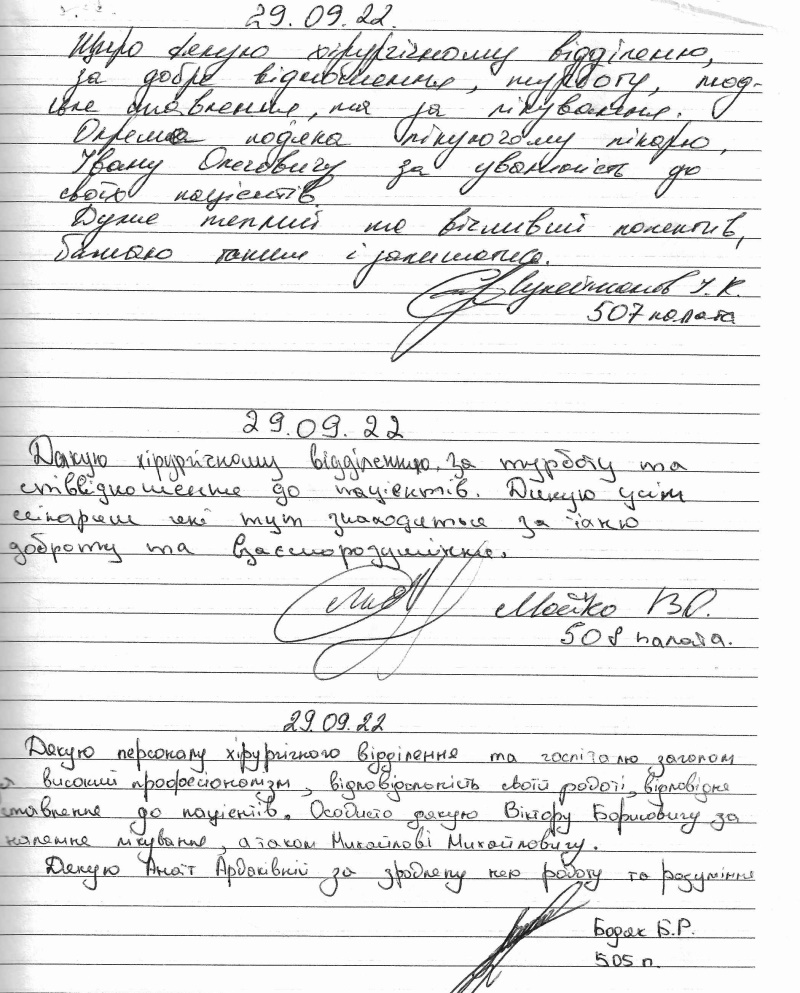 29.09.22.
Щиро дякую хірургічному відділенню,
за добре відношення, турботу, люд-
яне ставлення, та за лікування.
Окрема подяка лікуючому лікарю,
Івану Олеговичу за уважність до
своїх пацієнтів.
Дуже теплий та вічливий колектив,
бажаю таким і залишатися.
І. К.
507 палата
29.09.22
Дякую хірургічному відділенню, за турботу та
співвідношення до пацієнтів. Дякую усім
лікарям які тут знаходяться за їхню
доброту та взаєморозуміння.
Мойко В.О.
508 палата.
29.09.22
Дякую персоналу хірургічного відділення та госпіталю загалом
високий професіоналізм, відповідальність своїй роботі, відповідне
ставлення до пацієнтів. Особисто дякую Віктору Борисовичу за
належне лікування, а також Михайлові Михайловичу.
Дякую Анаїт Ардаківній за зроблену нею роботу та розуміння
Бодяк Б.Р.
505 п.